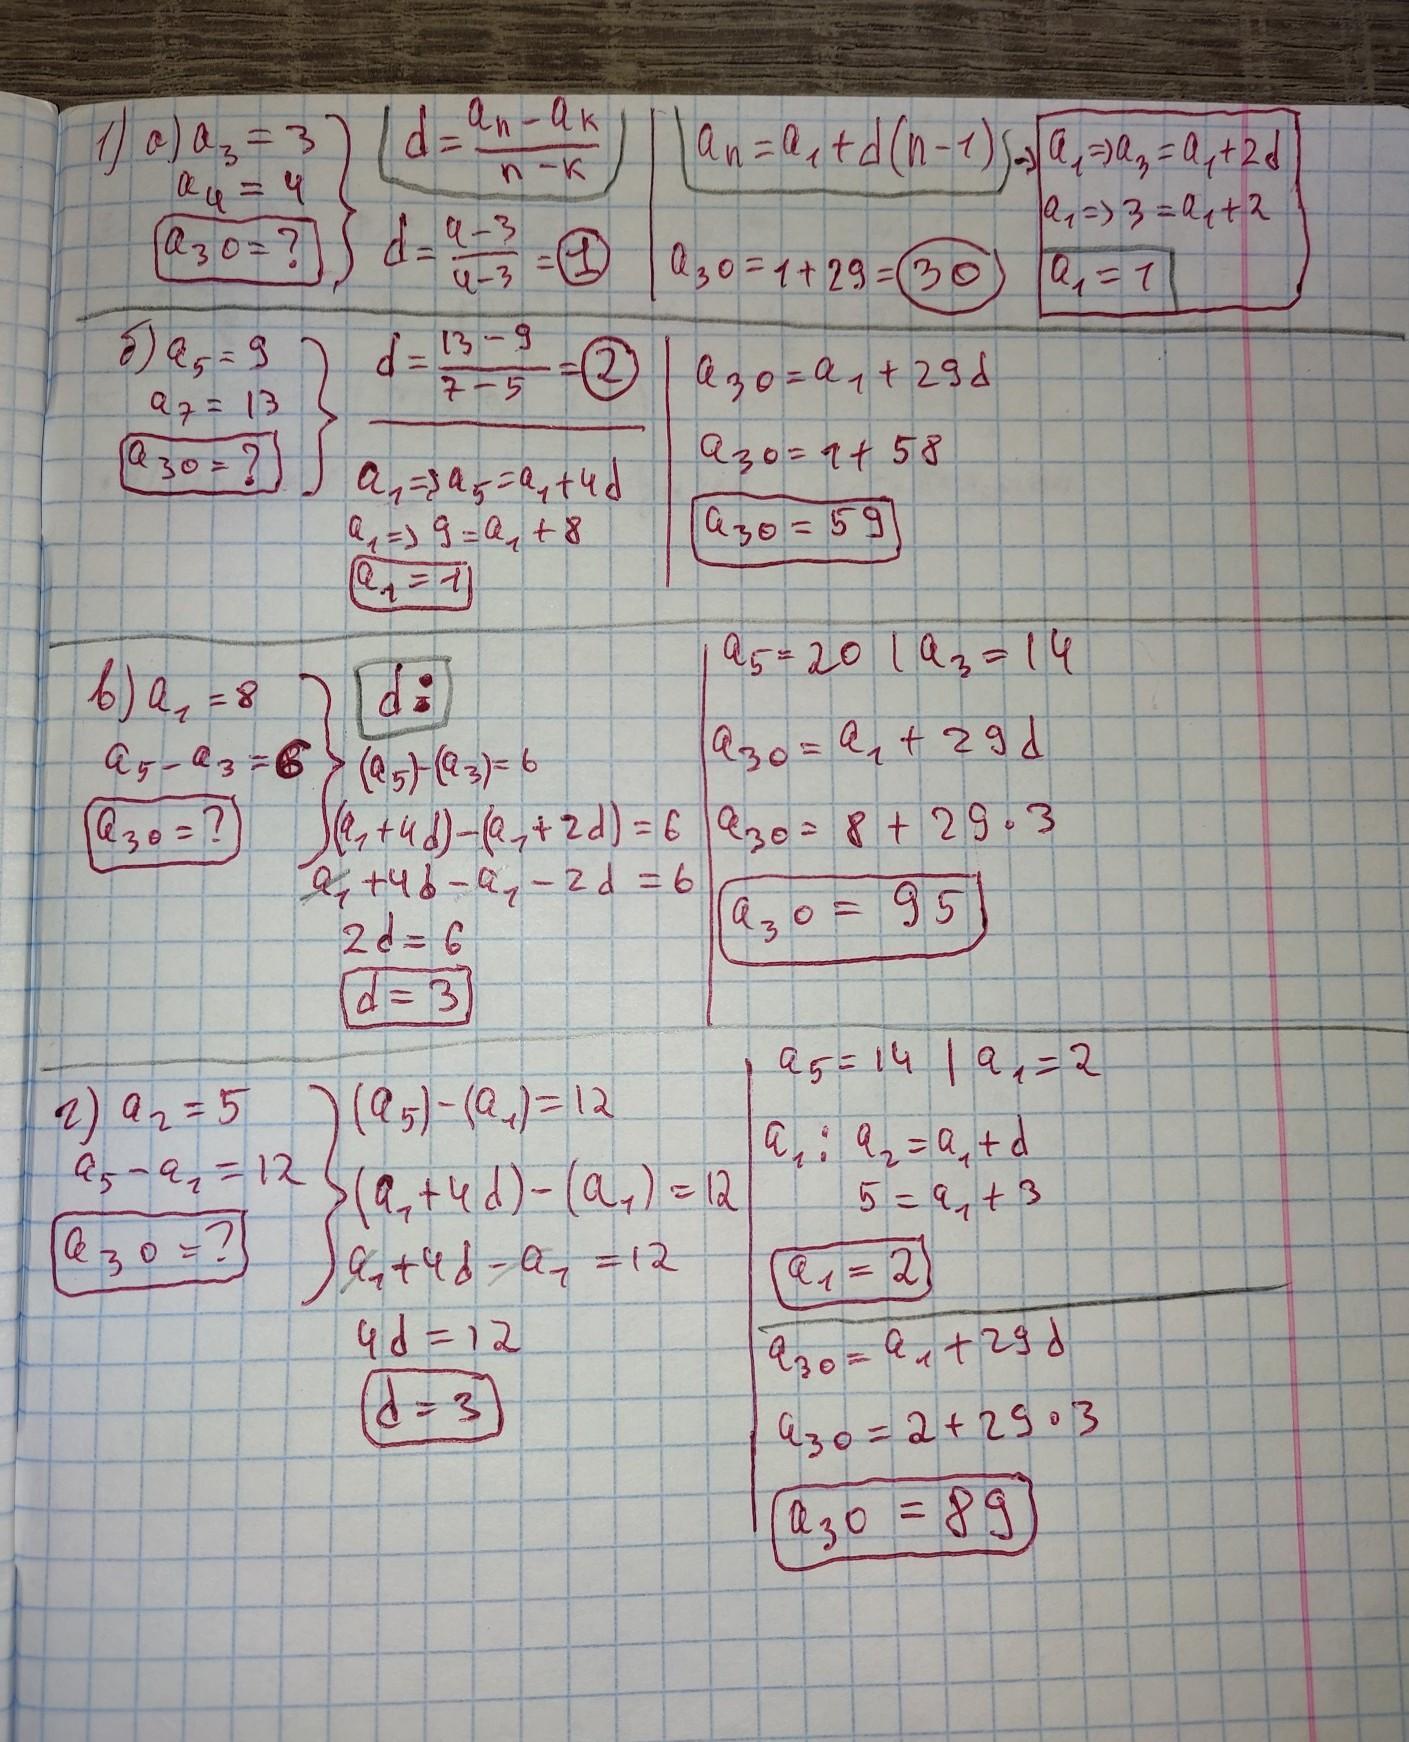 1) а) a₃ = 3
a₄ = 4
a₃₀ = ?
d = (aₙ - aₖ)/(n - k)
d = (4-3)/(4-3) = 1
aₙ = a₁ + d(n-1) ⇒
a₃₀ = 1 + 29 = 30
a₁ ⇒ a₃ = a₁ + 2d
a₁ ⇒ 3 = a₁ + 2
a₁ = 1
б) a₅ = 9
a₇ = 13
a₃₀ = ?
d = (13 - 9)/(7 - 5) = 2
a₁ ⇒ a₅ = a₁ + 4d
a₁ ⇒ 9 = a₁ + 8
a₁ = 1
a₃₀ = a₁ + 29d
a₃₀ = 1 + 58
a₃₀ = 59
в) a₁ = 8
a₅ - a₃ = 6
a₃₀ = ?
d:
(a₅) - (a₃) = 6
(a₁ + 4d) - (a₁ + 2d) = 6
a₁ + 4d - a₁ - 2d = 6
2d = 6
d = 3
a₅ = 20 | a₃ = 14
a₃₀ = a₁ + 29d
a₃₀ = 8 + 29 · 3
a₃₀ = 95
г) a₂ = 5
a₅ - a₁ = 12
a₃₀ = ?
(a₅) - (a₁) = 12
(a₁ + 4d) - (a₁) = 12
a₁ + 4d - a₁ = 12
4d = 12
d = 3
a₅ = 14 | a₁ = 2
a₁ : a₂ = a₁ + d
5 = a₁ + 3
a₁ = 2
a₃₀ = a₁ + 29d
a₃₀ = 2 + 29 · 3
a₃₀ = 89